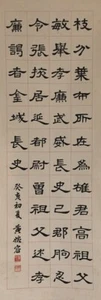 枝分葉布所在為雄君高祖父
敏舉孝廉武威長史巴郡朐忍
令張掖居延都尉曾祖父述孝
廉謁者金城長史
癸亥初夏